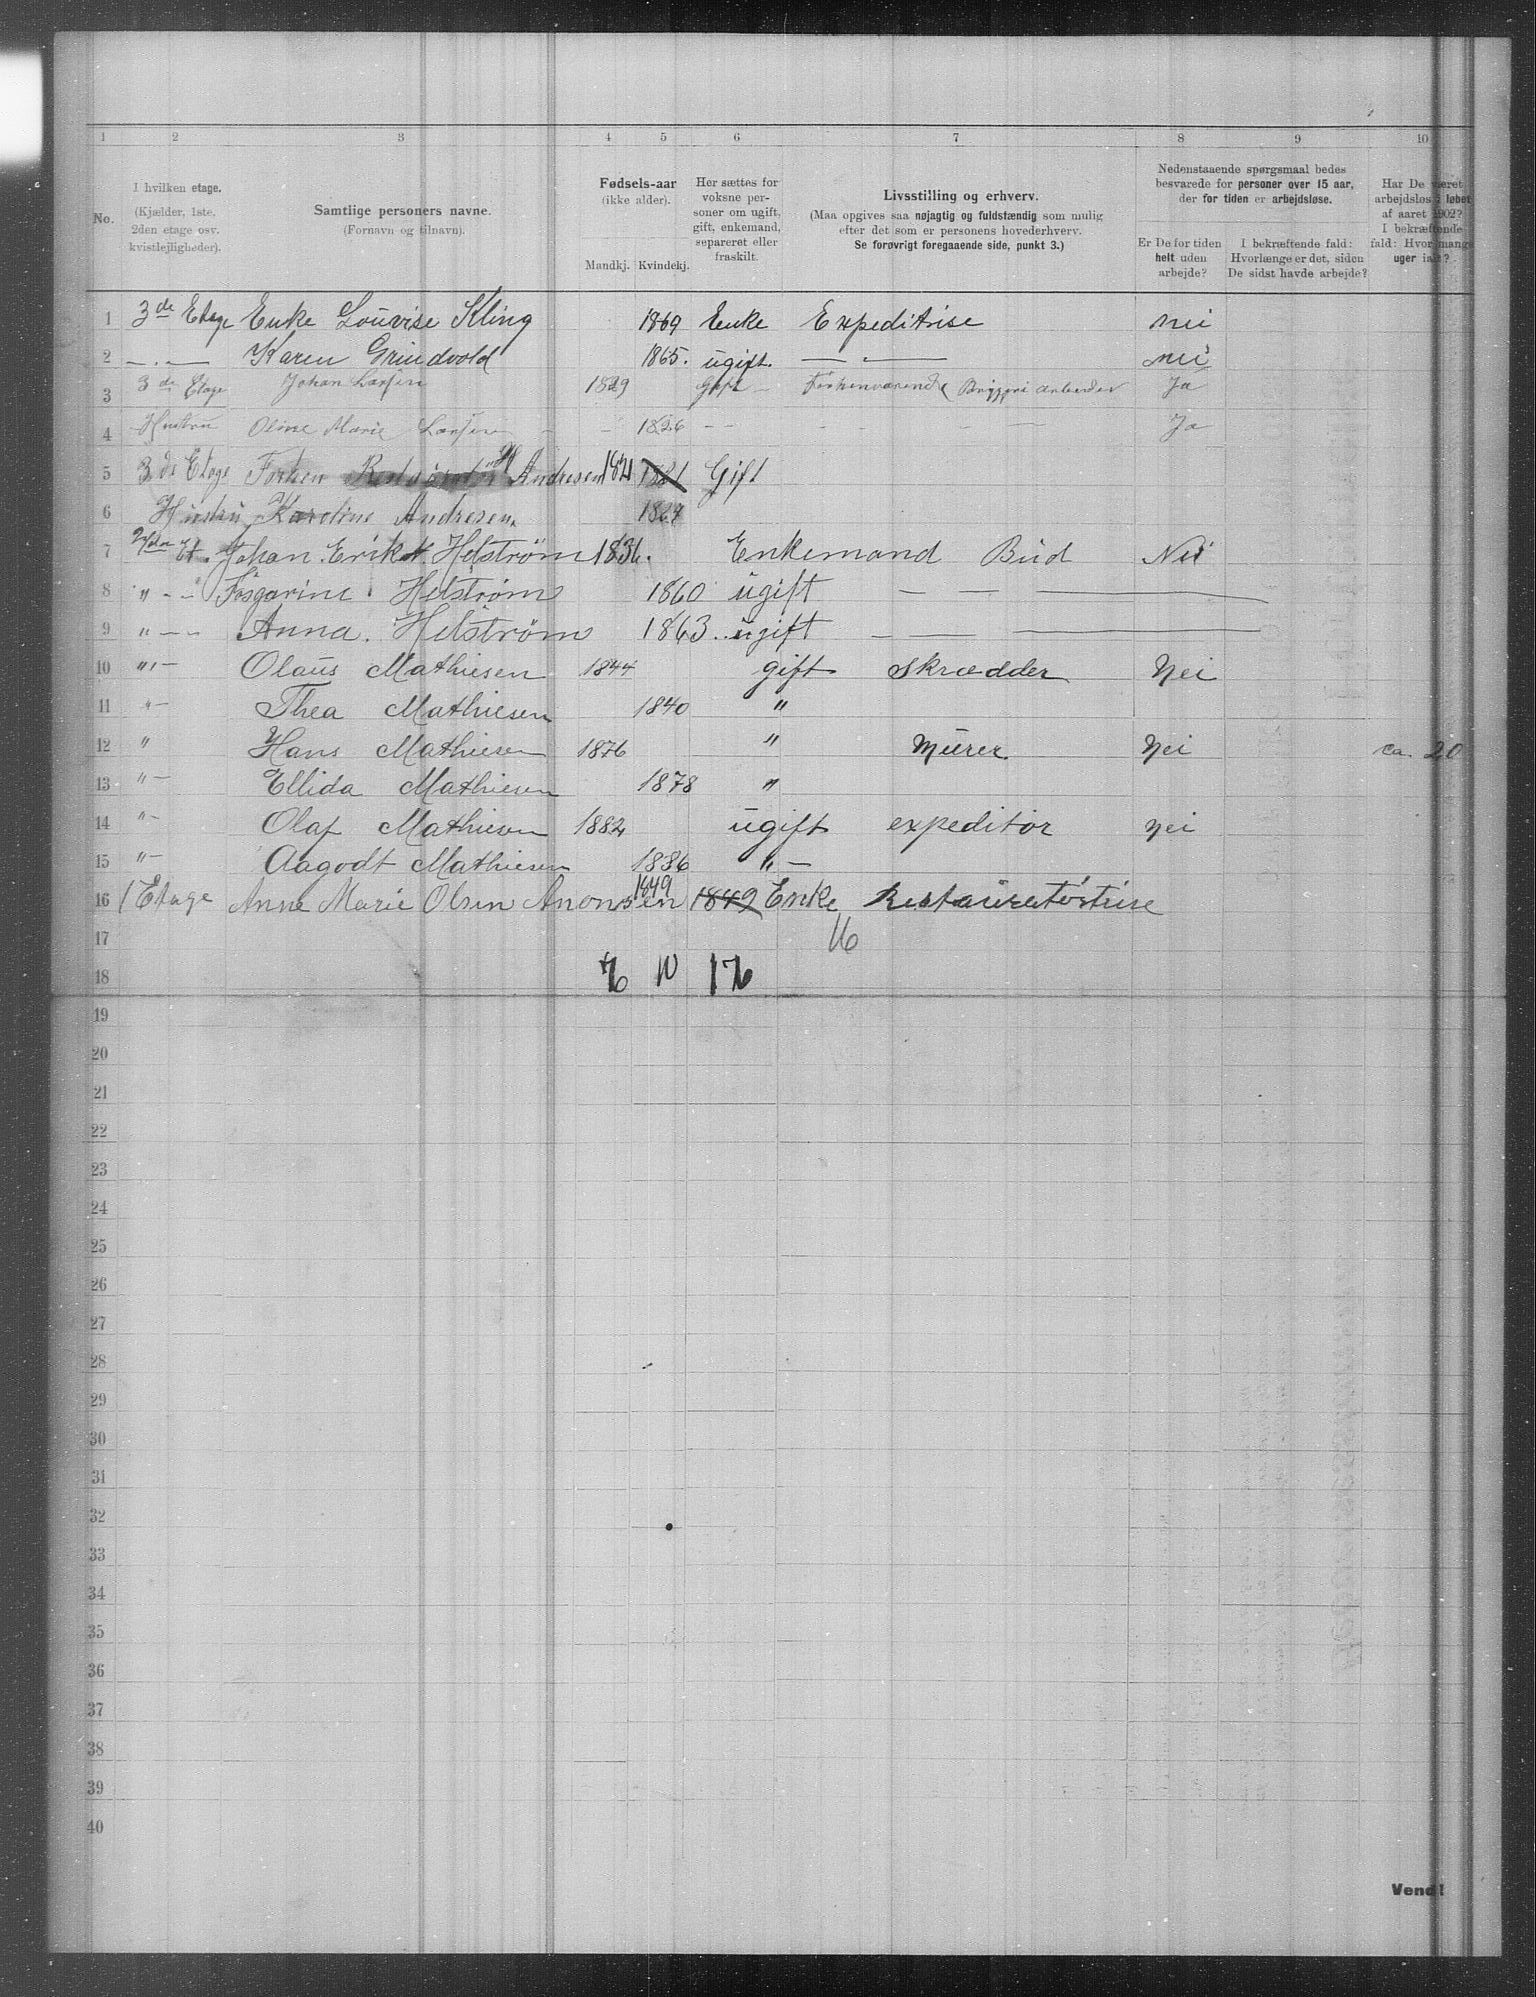 1 2 3 4 5 6 7 8 9 10
No.
I hvilken etage.
(Kjælder, 1ste, 2den etage osv. kvistlejligheder).
Samtlige personers navne.
(Fornavn og tilnavn).
Fødsels-aar
(ikke alder).
Mandkj. Kvindekj.
Her sættes for voksne personer om ugift, gift, enkemand, separeret eller fraskilt.
Livsstilling og erhverv.
(Maa opgives saa nøjagtig og fuldstændig som mulig efter det som er personens hovederhverv.
Se forøvrigt foregaaende side, punkt 3.)
Nedenstaaende spørgsmaal bedes besvarede for personer over 15 aar, der for tiden er arbejdsløse.
Er De for tiden helt uden arbejde?
I bekræftende fald: Hvorlænge er det, siden De sidst havde arbejde?
Har De været arbejdsløs i løbet af aaret 1902? I bekræftende fald: Hvor mange uger ialt?
1 3de Etage Enke Louvise Kling 1869 Enke Expeditrise nei
2 — " — Karen Grindvold 1865. ugift. — " — nei
3 3de Etage Johan Larsen 1829 Gift — Forhenværende Bryggeri arbeider Ja
4 Hustru Oline Marie Larsen 1826 — — Ja
5 3de Etage Forhen Andresen 1821 1821 Gift
6 Hustru Karoline Andresen. 1827
7 2den Et. Johan. Erik Helstrøm 1836. Enkemand Bud Nei
8 " - - Helstrøm 1860 ugift — —
9 " — " Anna. Helstrøm 1863. ugift — —
10 " — Olaus Mathiesen 1844 gift Skrædder Nei
11 " — Thea Mathiesen 1840 "
12 " Hans Mathiesen 1876 " Murer Nei ca. 20
13 " — Ellida Mathiesen 1878 "
14 " - Olaf Mathiesen 1882 ugift expeditør nei
15 " — Aagodt Mathiesen 1886 " —
16 1 Etage Anne Marie Olsen Anonsen 1849 1849 Enke Restauratørtrise
17 16
18 6 10 16
19
20
21
22
23
24
25
26
27
28
29
30
31
32
33
34
35
36
37
38
39
40
Vend!